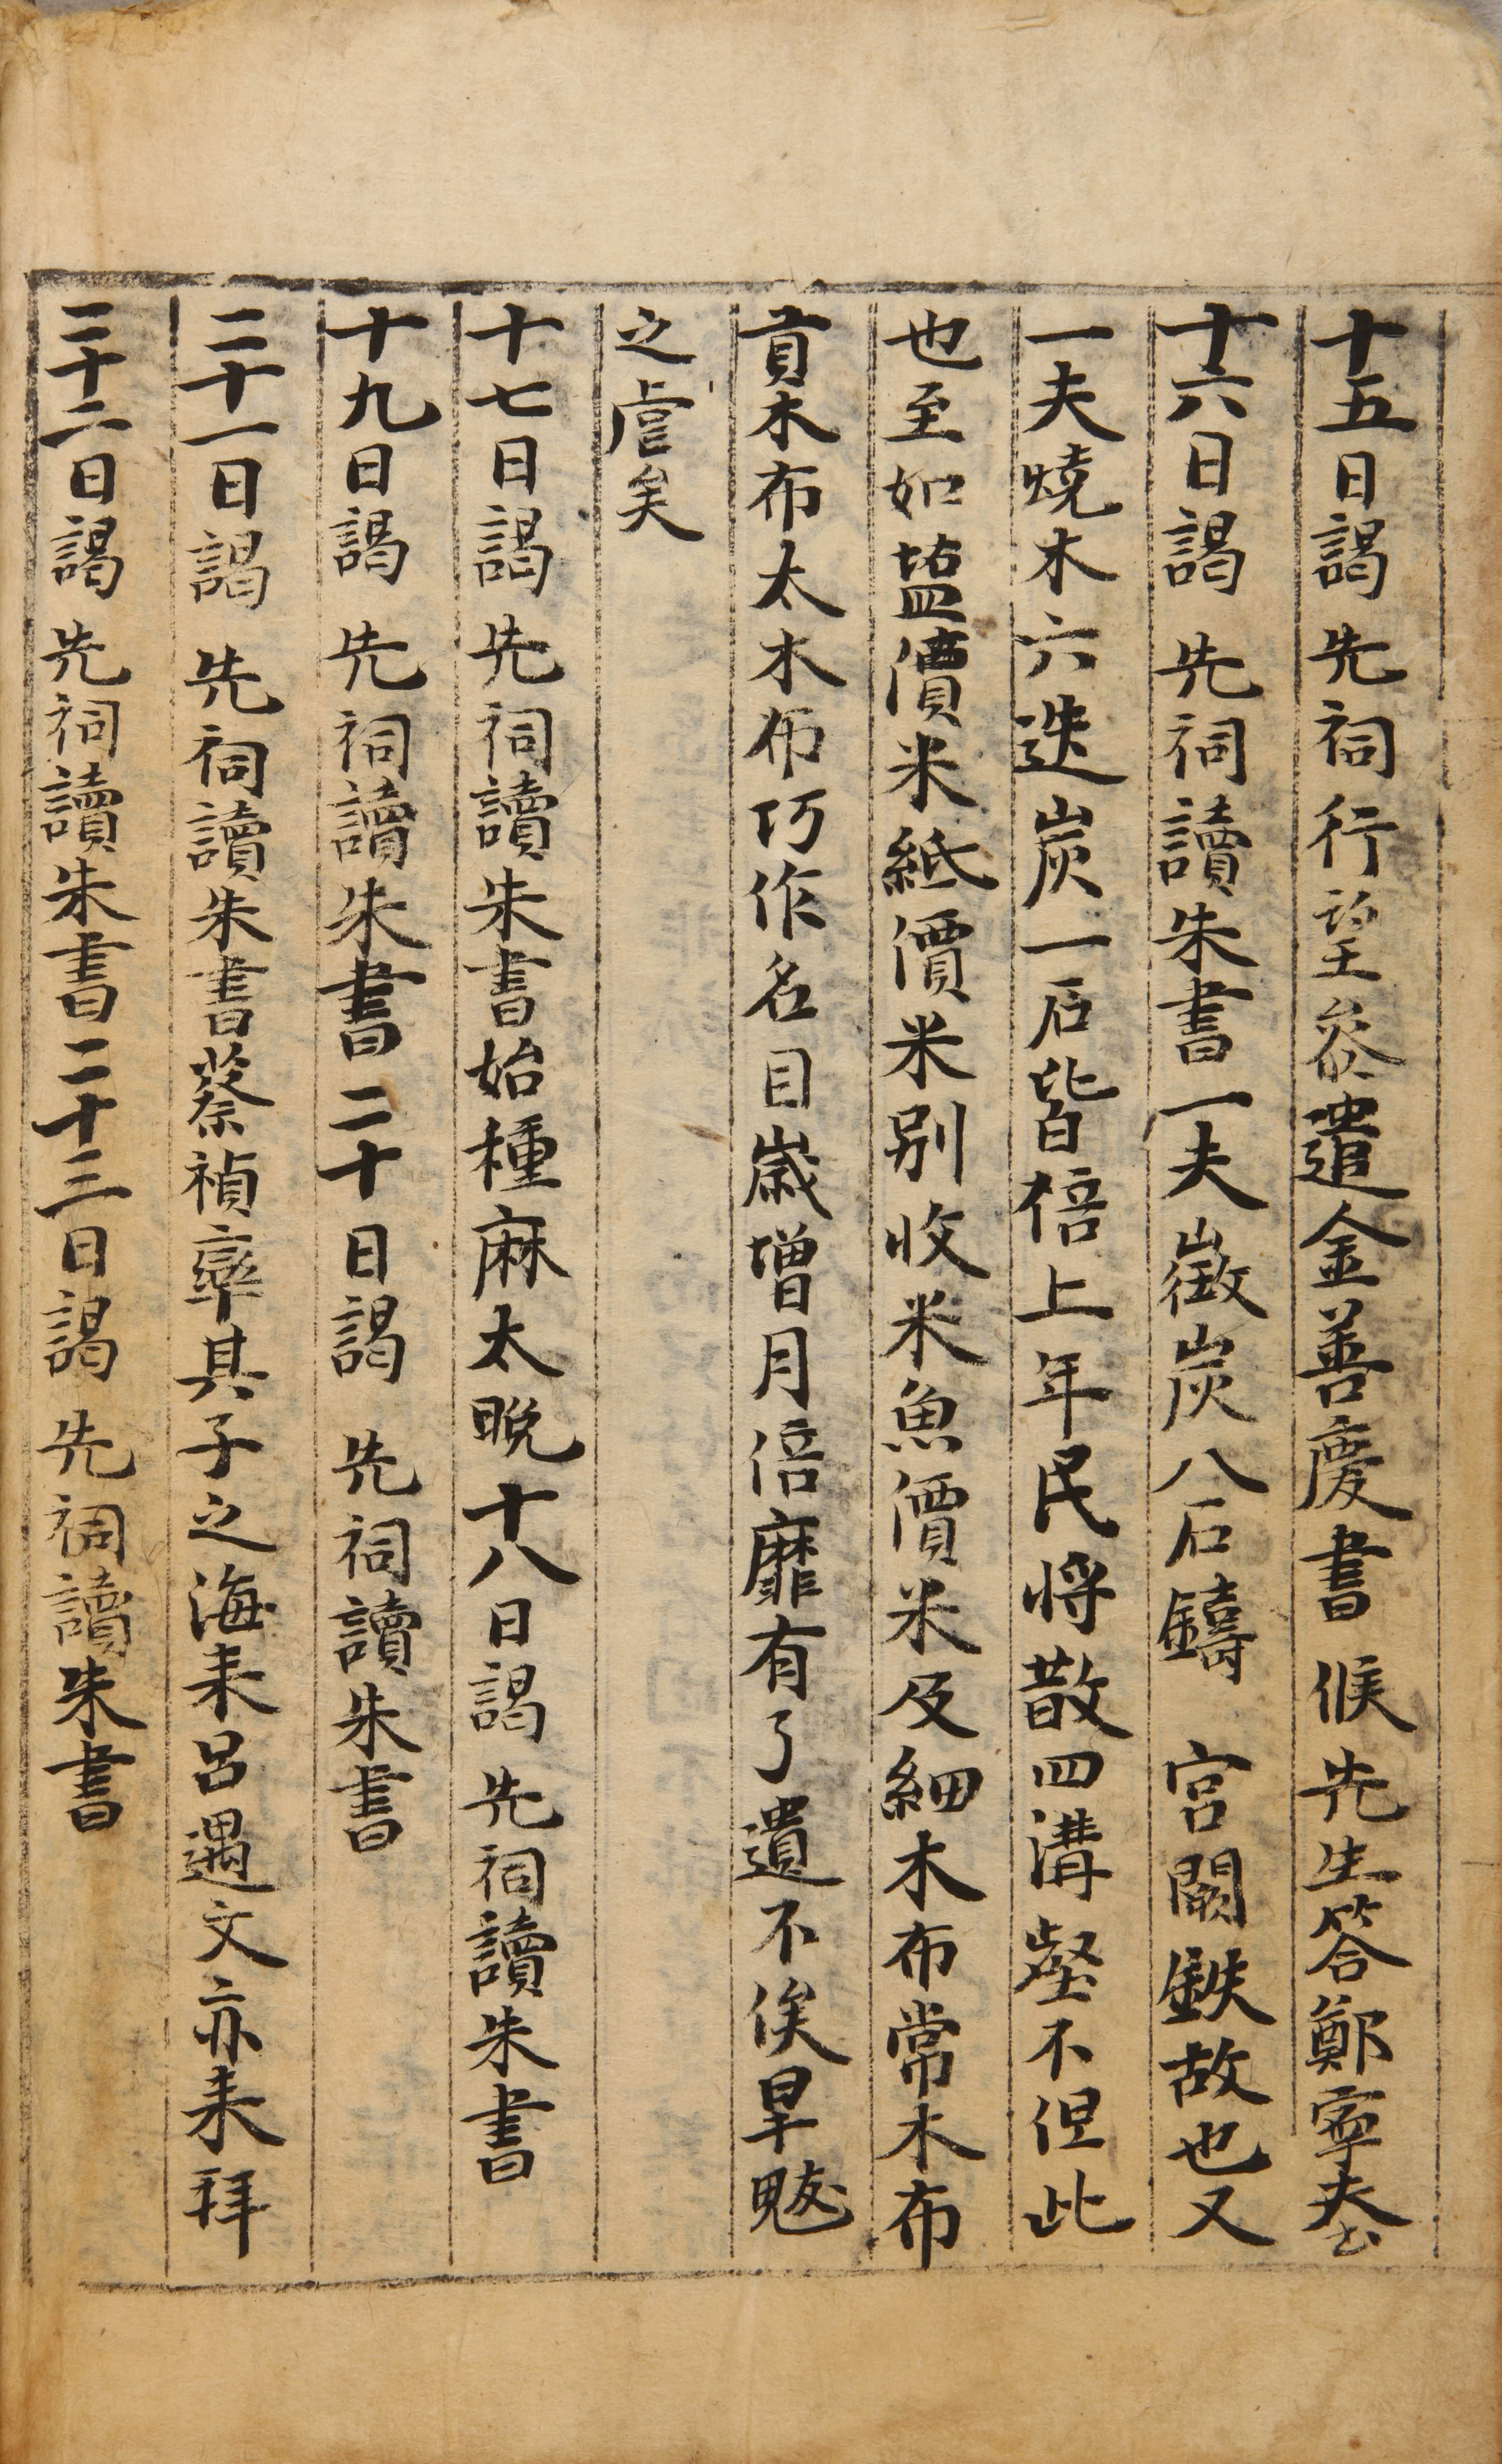 十五日謁 先祠行望叅遣金善慶書候先生答鄭寧夫書
十六日謁 先祠讀朱書一夫徵炭八石鑄 宮闕鐵故也又
一夫燒木六迭炭一石皆倍上年民将散四溝壑不但此
也至如塩價米紙價米別收米魚價米及細木布常木布
貢木布太木布巧作名目歲增月倍靡有孑遺不俟旱魃
之虐矣
十七日謁 先祠讀朱書始種麻太晚十八日謁 先祠讀朱書
十九日謁 先祠讀朱書二十日謁 先祠讀朱書
二十一日謁 先祠讀朱書蔡禎率其子之海来呂遇文亦来拜
二十二日謁 先祠讀朱書二十三日謁 先祠讀朱書